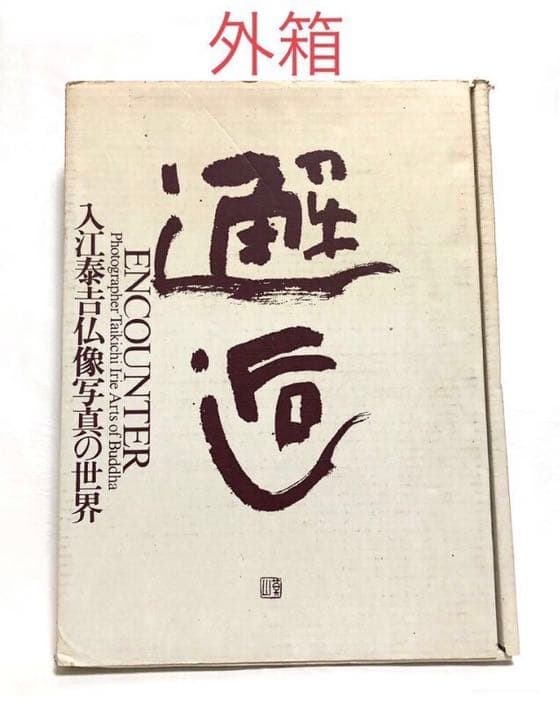 外箱
邂逅
ENCOUNTER
Photographer Taikichi Irie Arts of Buddha
入江泰吉仏像写真の世界